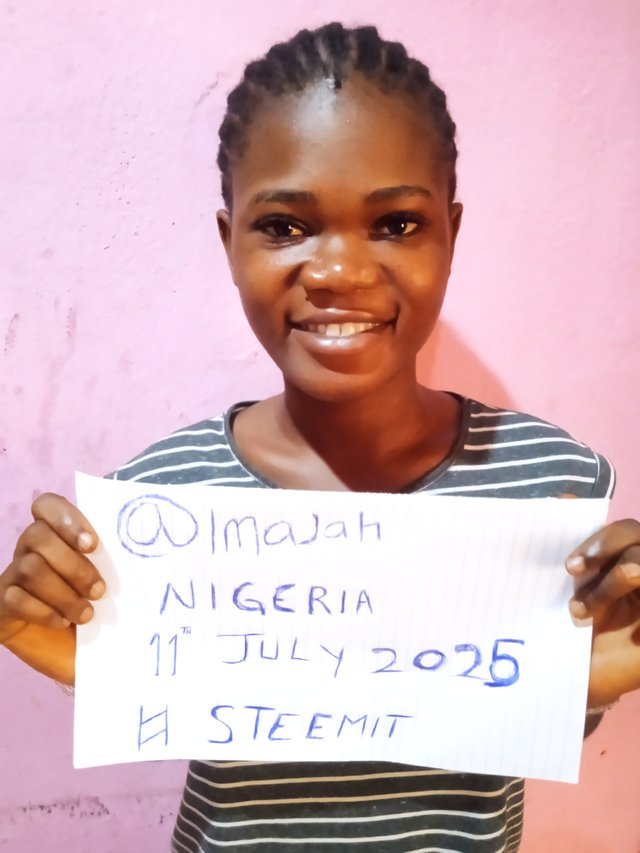 @Imajah
NIGERIA
11TH JULY 2025
# STEEMIT